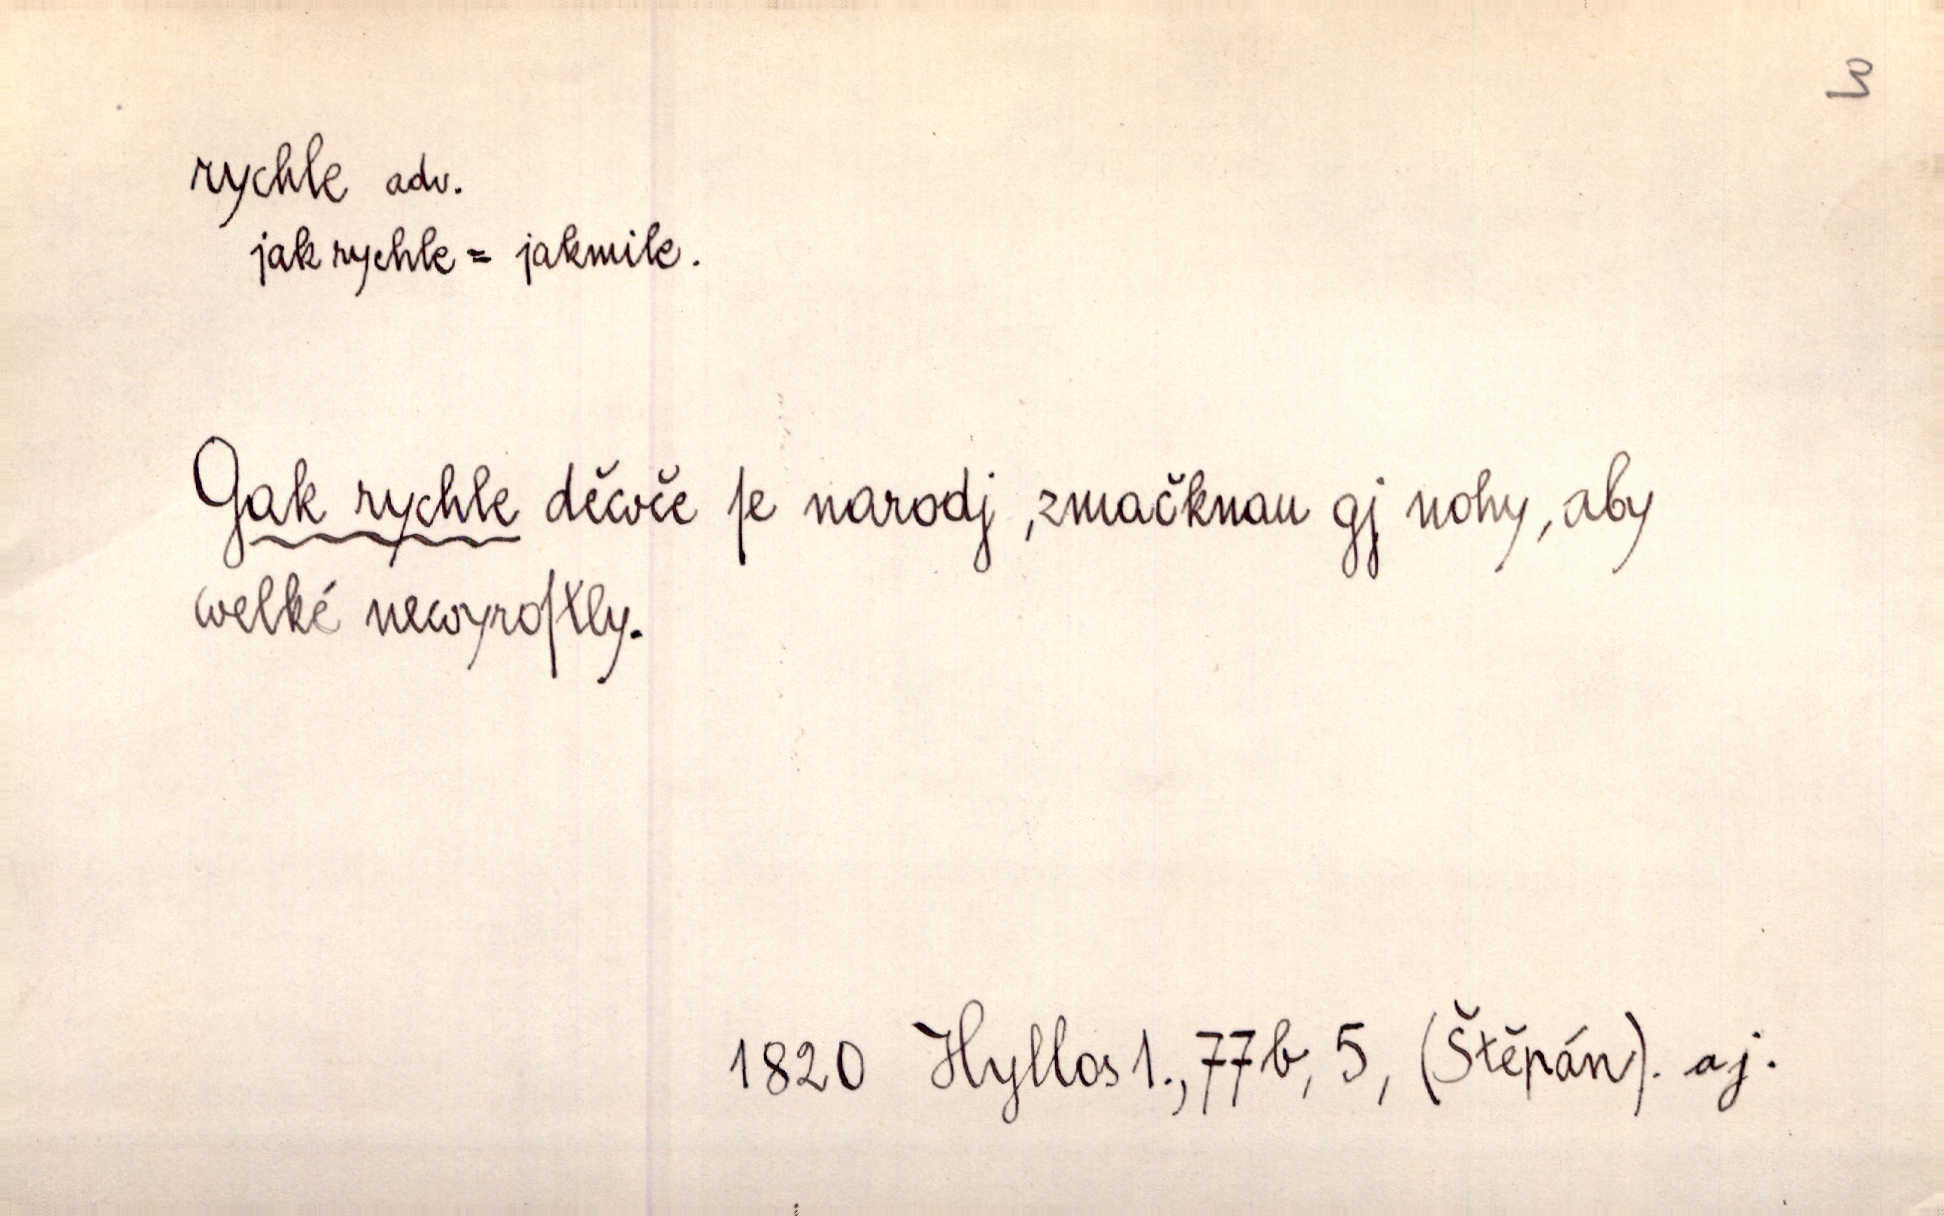 rychle adv.
jak rychle = jakmile.
Gak rychle děwče ſe narodj, zmačknau gj nohy, aby
welké newyroſtly.
1820 Hyllos 1., 77b, 5, (Štěpán). aj.